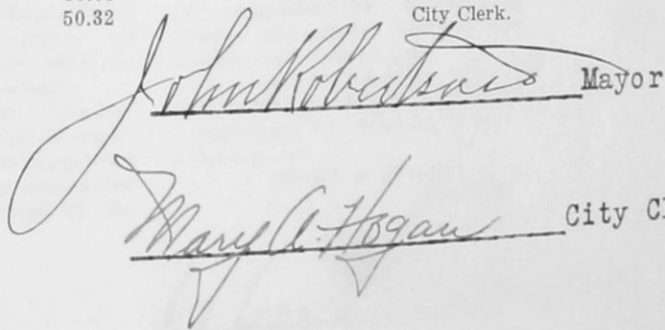 50.32 City Clerk.
John Robertson Mayor
Mary A. Hogan City Cl